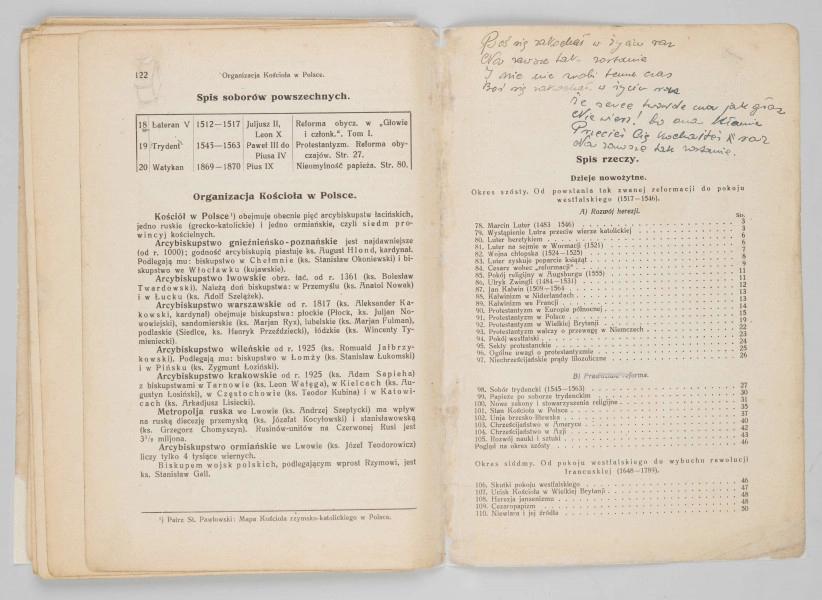 122
Organizacja Kościoła w Polsce.
Spis soborów powszechnych.
18 Lateran V 1512—1517 Juljusz II, Leon X Reforma obycz. w „Głowie i członk.". Tom I.
19 Trydent 1545—1563 Paweł III do Piusa IV Protestantyzm. Reforma obyczajów. Str. 27.
20 Watykan 1869—1870 Pius IX Nieomylność papieża. Str. 80.
Organizacja Kościoła w Polsce.
Kościół w Polsce¹) obejmuje obecnie pięć arcybiskupstw łacińskich,
jedno ruskie (grecko-katolickie) i jedno ormiańskie, czyli siedm pro-
wincyj kościelnych.
Arcybiskupstwo gnieźnieńsko-poznańskie jest najdawniejsze
(od r. 1000); godność arcybiskupią piastuje ks. August Hlond, kardynał.
Podlegają mu: biskupstwo w Chełmnie (ks. Stanisław Okoniewski) i bi-
skupstwo we Włocławku (kujawskie).
Arcybiskupstwo lwowskie obrz. łać. od r. 1361 (ks. Bolesław
Twardowski). Należą doń biskupstwa: w Przemyślu (ks. Anatol Nowak)
i w Łucku (ks. Adolf Szelążek).
Arcybiskupstwo warszawskie od r. 1817 (ks. Aleksander Ka-
kowski, kardynał) obejmuje biskupstwa: płockie (Płock, ks. Juljan No-
wowiejski), sandomierskie (ks. Marjan Ryx), lubelskie (ks. Marjan Fulman),
podlaskie (Siedlce, ks. Henryk Przeździecki), łódzkie (ks. Wincenty Ty-
mieniecki).
Arcybiskupstwo wileńskie od r. 1925 (ks. Romuald Jałbrzy-
kowski). Podlegają mu: biskupstwo w Łomży (ks. Stanisław Łukomski)
i w Pińsku (ks. Zygmunt Łoziński).
Arcybiskupstwo krakowskie od r. 1925 (ks. Adam Sapieha)
z biskupstwami w Tarnowie (ks. Leon Wałęga), w Kielcach (ks. Au-
gustyn Łosiński), w Częstochowie (ks. Teodor Kubina) i w Katowi-
cach (ks. Arkadjusz Lisiecki).
Metropolja ruska we Lwowie (ks. Andrzej Szeptycki) ma wpływ
na ruską diecezję przemyską (ks. Józafat Kocyłowski) i stanisławowską
(ks. Grzegorz Chomyszyn). Rusinów-unitów na Czerwonej Rusi jest
3¹/₂ miljona.
Arcybiskupstwo ormiańskie we Lwowie (ks. Józef Teodorowicz)
liczy tylko 4 tysiące wiernych.
Biskupem wojsk polskich, podlegającym wprost Rzymowi, jest
ks. Stanisław Gall.
¹) Patrz St. Pawłowski: Mapa Kościoła rzymsko-katolickiego w Polsce.
się zakochał w życiu raz
Na zawsze tak zostanie
I nic nie zrobi temu czas
Boś się zakochał w życiu raz
że serce twarde ma jak głaz
Nie wierz! bo ona kłamie
Przecież Cię kochałeś raz
Na zawsze tak zostanie.
Spis rzeczy.
Dzieje nowożytne.
Okres szósty. Od powstania tak zwanej reformacji do pokoju
westfalskiego (1517—1546).
A) Rozwój herezji.
Str.
78. Marcin Luter (1483 1546) 3
79. Wystąpienie Lutra przeciw wierze katolickiej 3
80. Luter heretykiem 6
81. Luter na sejmie w Wormacji (1521) 6
82. Wojna chłopska (1524—1525) 7
83. Luter zyskuje poparcie książąt 8
84. Cesarz wobec „reformacji" 9
85. Pokój religijny w Augsburgu (1555) 11
86. Ulryk Zwingli (1484—1531) 11
87. Jan Kalwin (1509—1564 11
88. Kalwinizm w Niderlandach 12
89. Kalwinizm we Francji 13
90. Protestantyzm w Europie północnej 13
91. Protestantyzm w Polsce 14
92. Protestantyzm w Wielkiej Brytanji 15
93. Protestantyzm walczy o przewagę w Niemczech 19
94. Pokój westfalski 22
95. Sekty protestanckie 23
96. Ogólne uwagi o protestantyzmie 24
97. Niechrześcijańskie prądy filozoficzne 25
26
B) Prawdziwa reforma.
98. Sobór trydencki (1545—1563) 27
99. Papieże po soborze trydenckim 30
100. Nowe zakony i stowarzyszenia religijne 31
101. Stan Kościoła w Polsce 35
102. Unja brzesko-litewska 37
103. Chrześcijaństwo w Ameryce 40
104. Chrześcijaństwo w Azji 42
105. Rozwój nauki i sztuki 43
Pogląd na okres szósty 46
Okres siódmy. Od pokoju westfalskiego do wybuchu rewolucji
francuskiej (1648—1789).
106. Skutki pokoju westfalskiego 46
107. Ucisk Kościoła w Wielkiej Brytanji 47
108. Herezja jansenizmu 48
109. Cezaropapizm 48
110. Niewiara i jej źródła 50